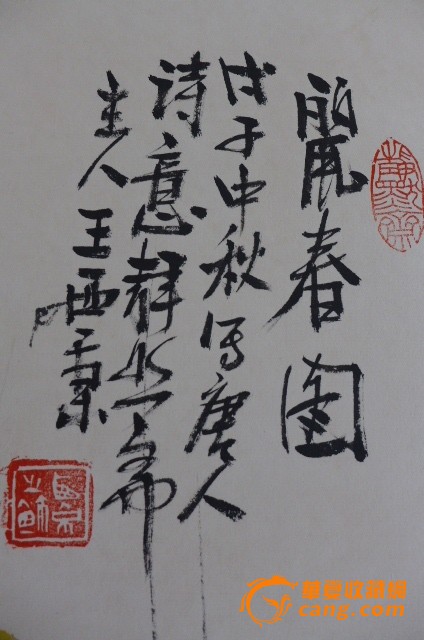 麗春图
戊子中秋写唐人
诗意静斋
主人王西
华夏收藏网
cang.com